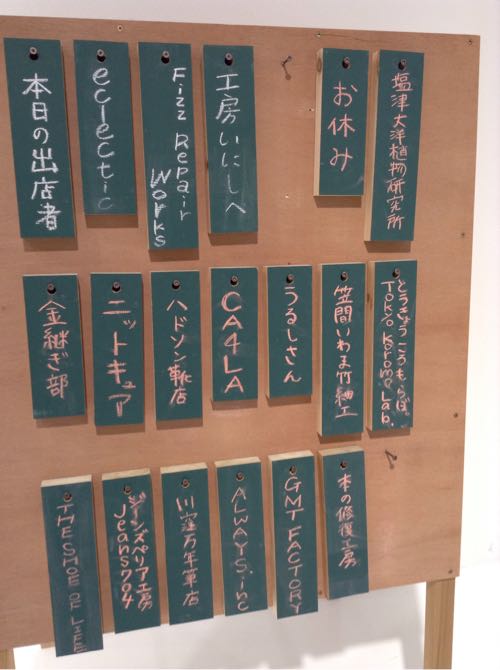 本日の出店者
eclectic
Fizz Repair
Works
工房いにしへ
お休み
塩津大洋植物研究所
金継ぎ部
ニットキュア
ハドソン靴店
CA4LA
うるしさん
笠間いわま竹細工
とうきょうころも・らぼ。
Tokyo Koromo Lab.
THE SHOE OF LIFE
ジーンズペリア工房
Jeans704
川窪万年筆店
ALWAYS.inc
GMT FACTORY
本の修復工房